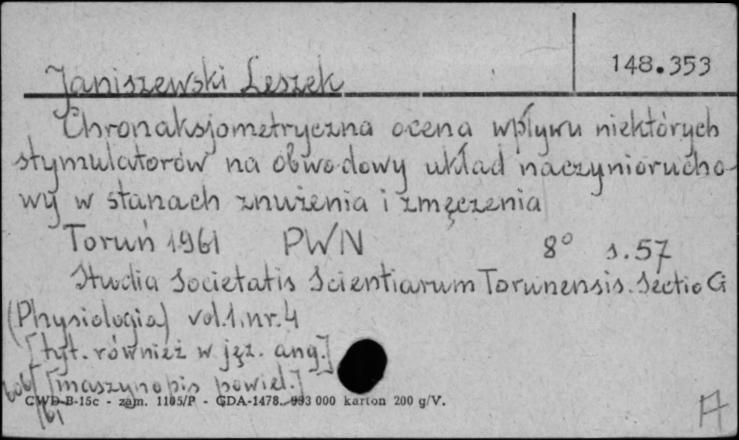 148.353
Janiszewski Leszek
Chronaksjometryczna ocena wpływu niektórych
stymulatorów na obwodowy układ naczyniorucho-
wy w stanach znużenia i zmęczenia
Toruń 1961 PWN 8° s.57
Studia Societatis Scientiarum Torunensis. Sectio G
(Physiologia) vol.1.nr.4
[tyt. również w jęz. ang.]
[maszynopis powiel.]
CWD-B-15c - zam. 1105/P - GDA-1478. 993 000 karton 200 g/V.
/61